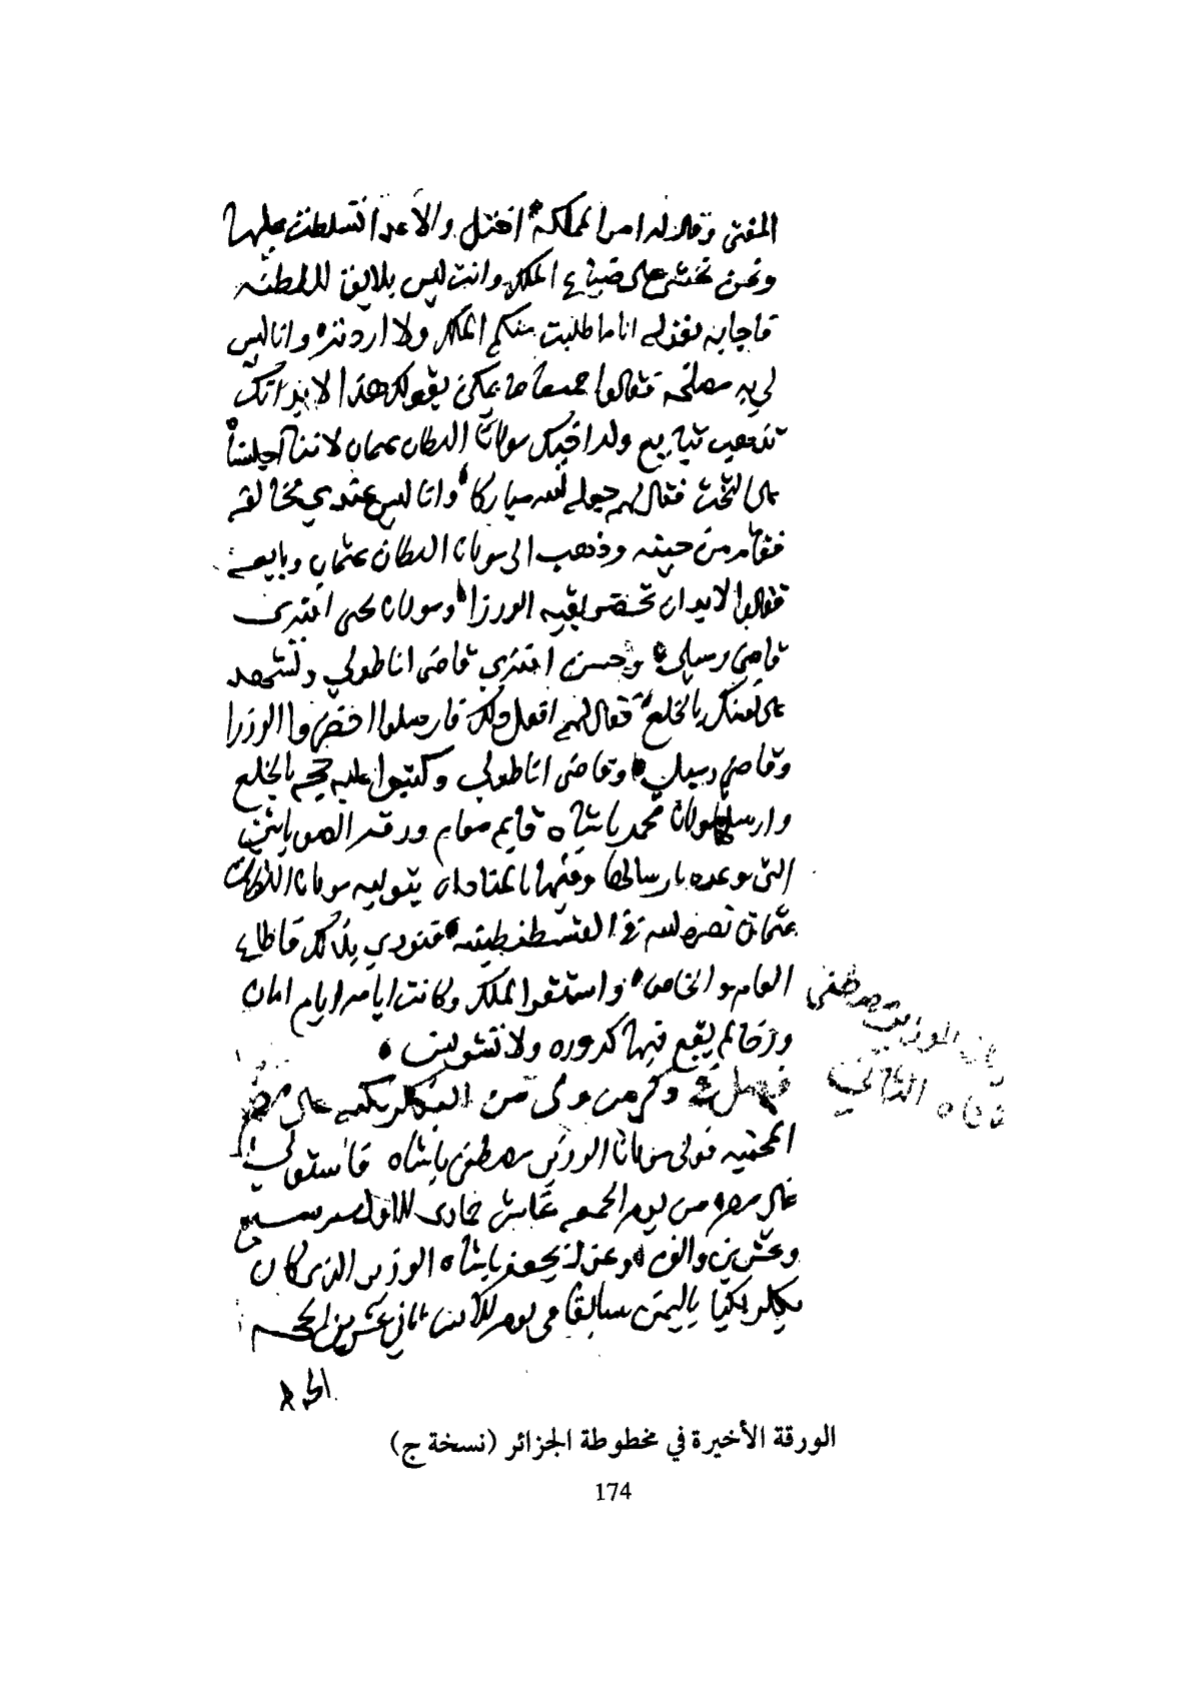 المفتى وقال له امر المملكة اختل والاعدا تسلطت عليها
ونحن نخشى على ضياع الملك وانت ليس بلايق للسلطنه
فاجابه بقوله انا ما طلبت منكم الملك ولا اردته وانا ليس
لي به مصلحه فقالوا جميعا ما يمكن بقولك هذا لا بد انك
تذهب تبايع ولد اخيك مولانا السلطان عثمان لاننا اجلسناه
على التخت فقال لهم جعله الله مباركا وانا ليس عندي مخالفه
فقام من حينه وذهب الى مولانا السلطان عثمان وبايعه
فقالوا لا بد ان تحضر بقيه الوزرا ومولانا يحيى افندى
قاضي وحسن افندي قاضى اناطولي ونشهد
على نفسك بالخلع فقال لهم افعل ذلك فارسلوا احضروا الوزرا
وقاضي وقاضى اناطولي وكتبوا عليه حجه بالخلع
وارسل مولانا محمد باشاه قايم مقام ورقه
التى بارسالها بتوليه مولانا السلطان
عثمان نصره الله في القسطنطينيه فنودي بذلك فاطاع
العام والخاص واستقر الملك وكانت ايامه ايام امان
ورخا لم يقع فيها كدوره ولا تشويش
فصل في ذكر من ولى من البكلربكيه على مصر
المحميه فولى مولانا الوزير مصطفى باشاه فاستولى
على مصر من يوم الجمعه عاشر جمادى الاول سبع
وعشرين والف وعزل جعفر باشاه الوزير الذى كان
بكلربكيا باليمن سابقا في يوم الاثنين ثاني عشرين
مصطفى
باشاه الثاني
الورقة الأخيرة في مخطوطة الجزائر (نسخة ج)
174